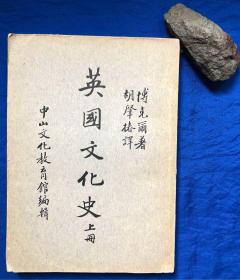 博克爾著
胡肇椿譯
英國文化史上冊
中山文化教育館編輯